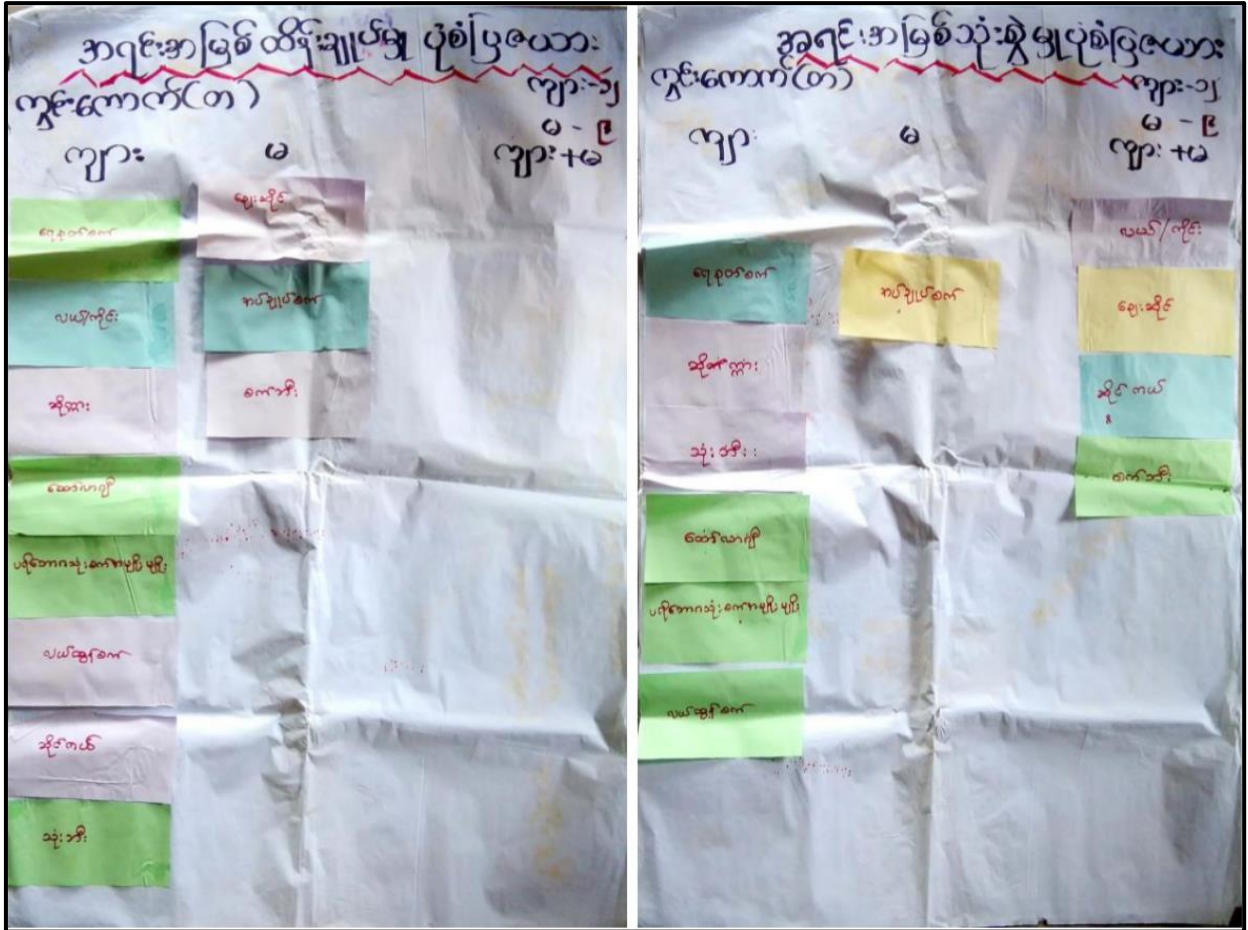 အရင်းအမြစ်ထိန်းချုပ်မှု ပုံစံပြဇယား
ကွင်းကောက်(တ)
ကျား-၁၂
မ - ၉
ကျား
မ
ကျား+မ
ရေစုတ်စက်
လယ်/ကိုင်း
ဆိုက္ကား
ထော်လာဂျီ
ပရိဘောဂသုံးစက်အမျိုးမျိုး
လယ်ထွန်စက်
ဆိုင်ကယ်
သုံးဘီး
ဈေးဆိုင်
အပ်ချုပ်စက်
စက်ဘီး
အရင်းအမြစ်သုံးစွဲမှုပုံစံပြဇယား
ကွင်းကောက်(တ)
ကျား-၁၂
မ - ၉
ကျား
မ
ကျား+မ
ရေစုတ်စက်
ဆိုက္ကား
သုံးဘီး
ထော်လာဂျီ
ပရိဘောဂသုံးစက်အမျိုးမျိုး
လယ်ထွန်စက်
အပ်ချုပ်စက်
လယ်/ကိုင်း
ဈေးဆိုင်
ဆိုင်ကယ်
စက်ဘီး